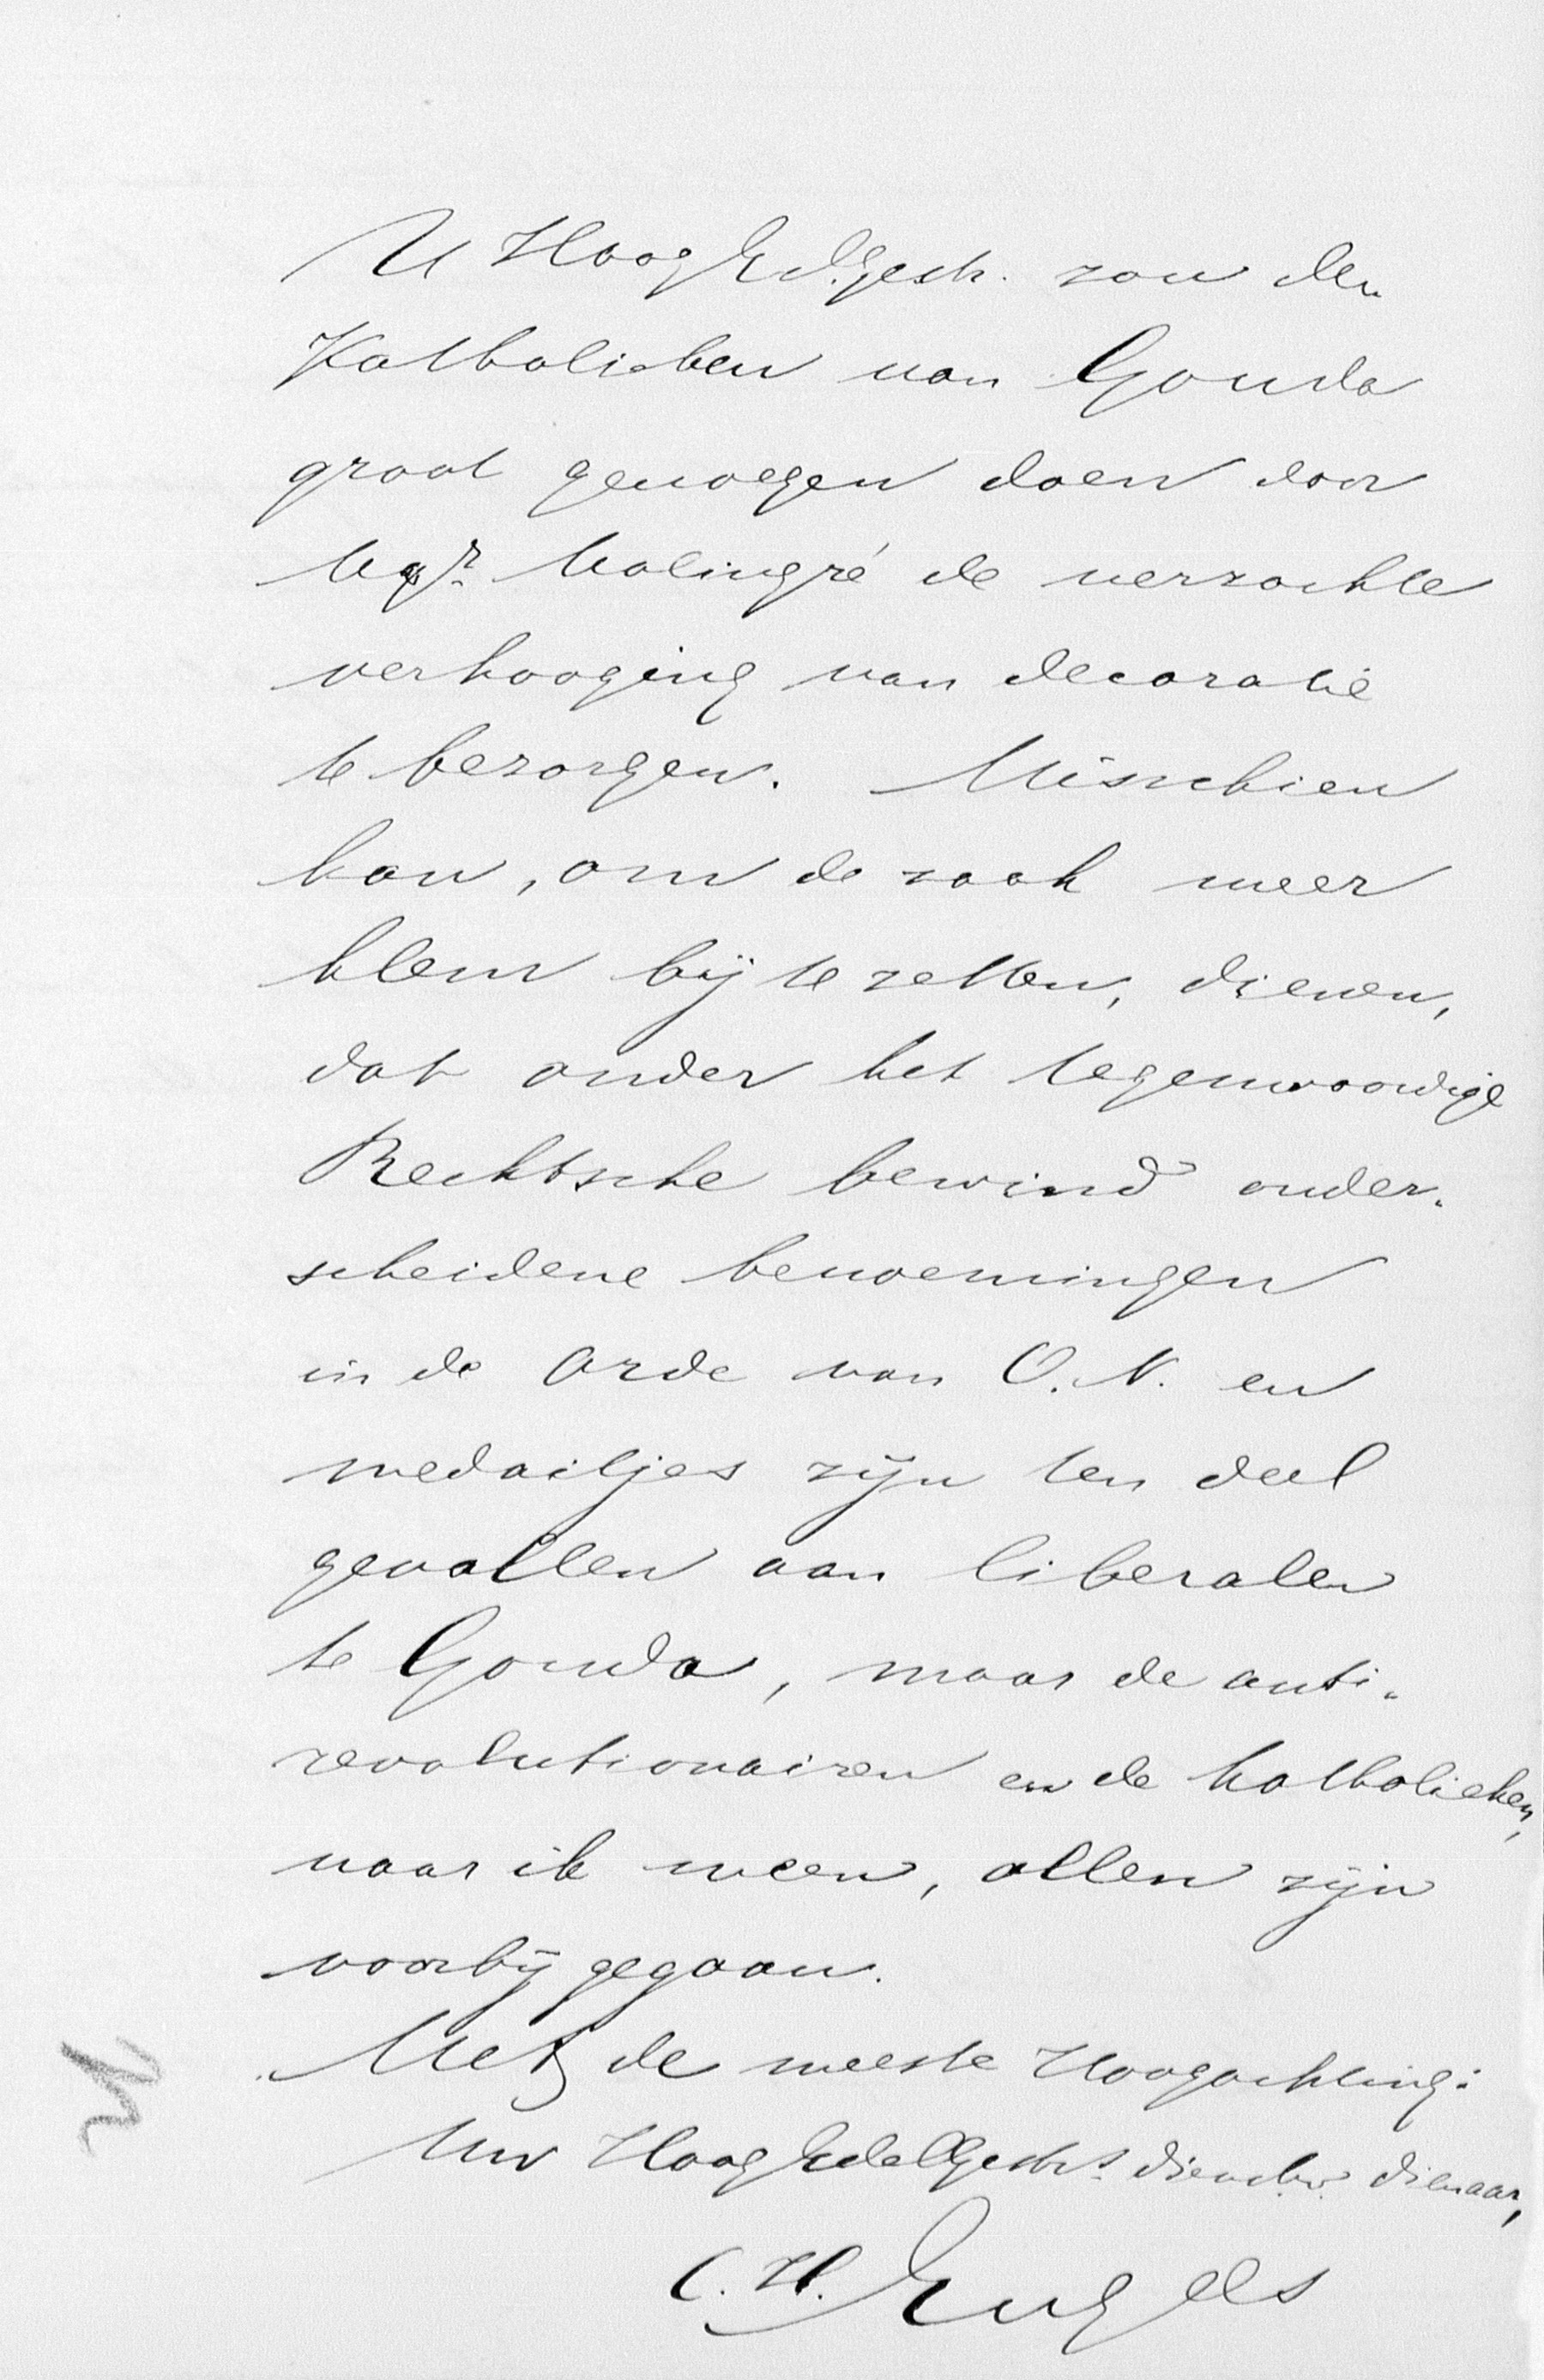 U HoogEd.gestr. zou den
Katholieken van Gouda
groot genoegen doen door
Mgr. Malingré de verzochte
verhooging van decoratie
te bezorgen. Misschien
kan, om de zaak meer
klem bij te zetten, dienen,
dat onder het tegenwoordige
Rechtsche bewind onder-
scheidene benoemingen
in de Orde van O.N. en
medailjes zijn ten deel
gevallen aan liberalen
te Gouda, maar de anti-
revolutionairen en de katholieken,
naar ik meen, allen zijn
voorbij gegaan.
Met de meeste Hoogachting:
Uw HoogEdelGestrs. dienstw. dienaar,
C. H. Engels